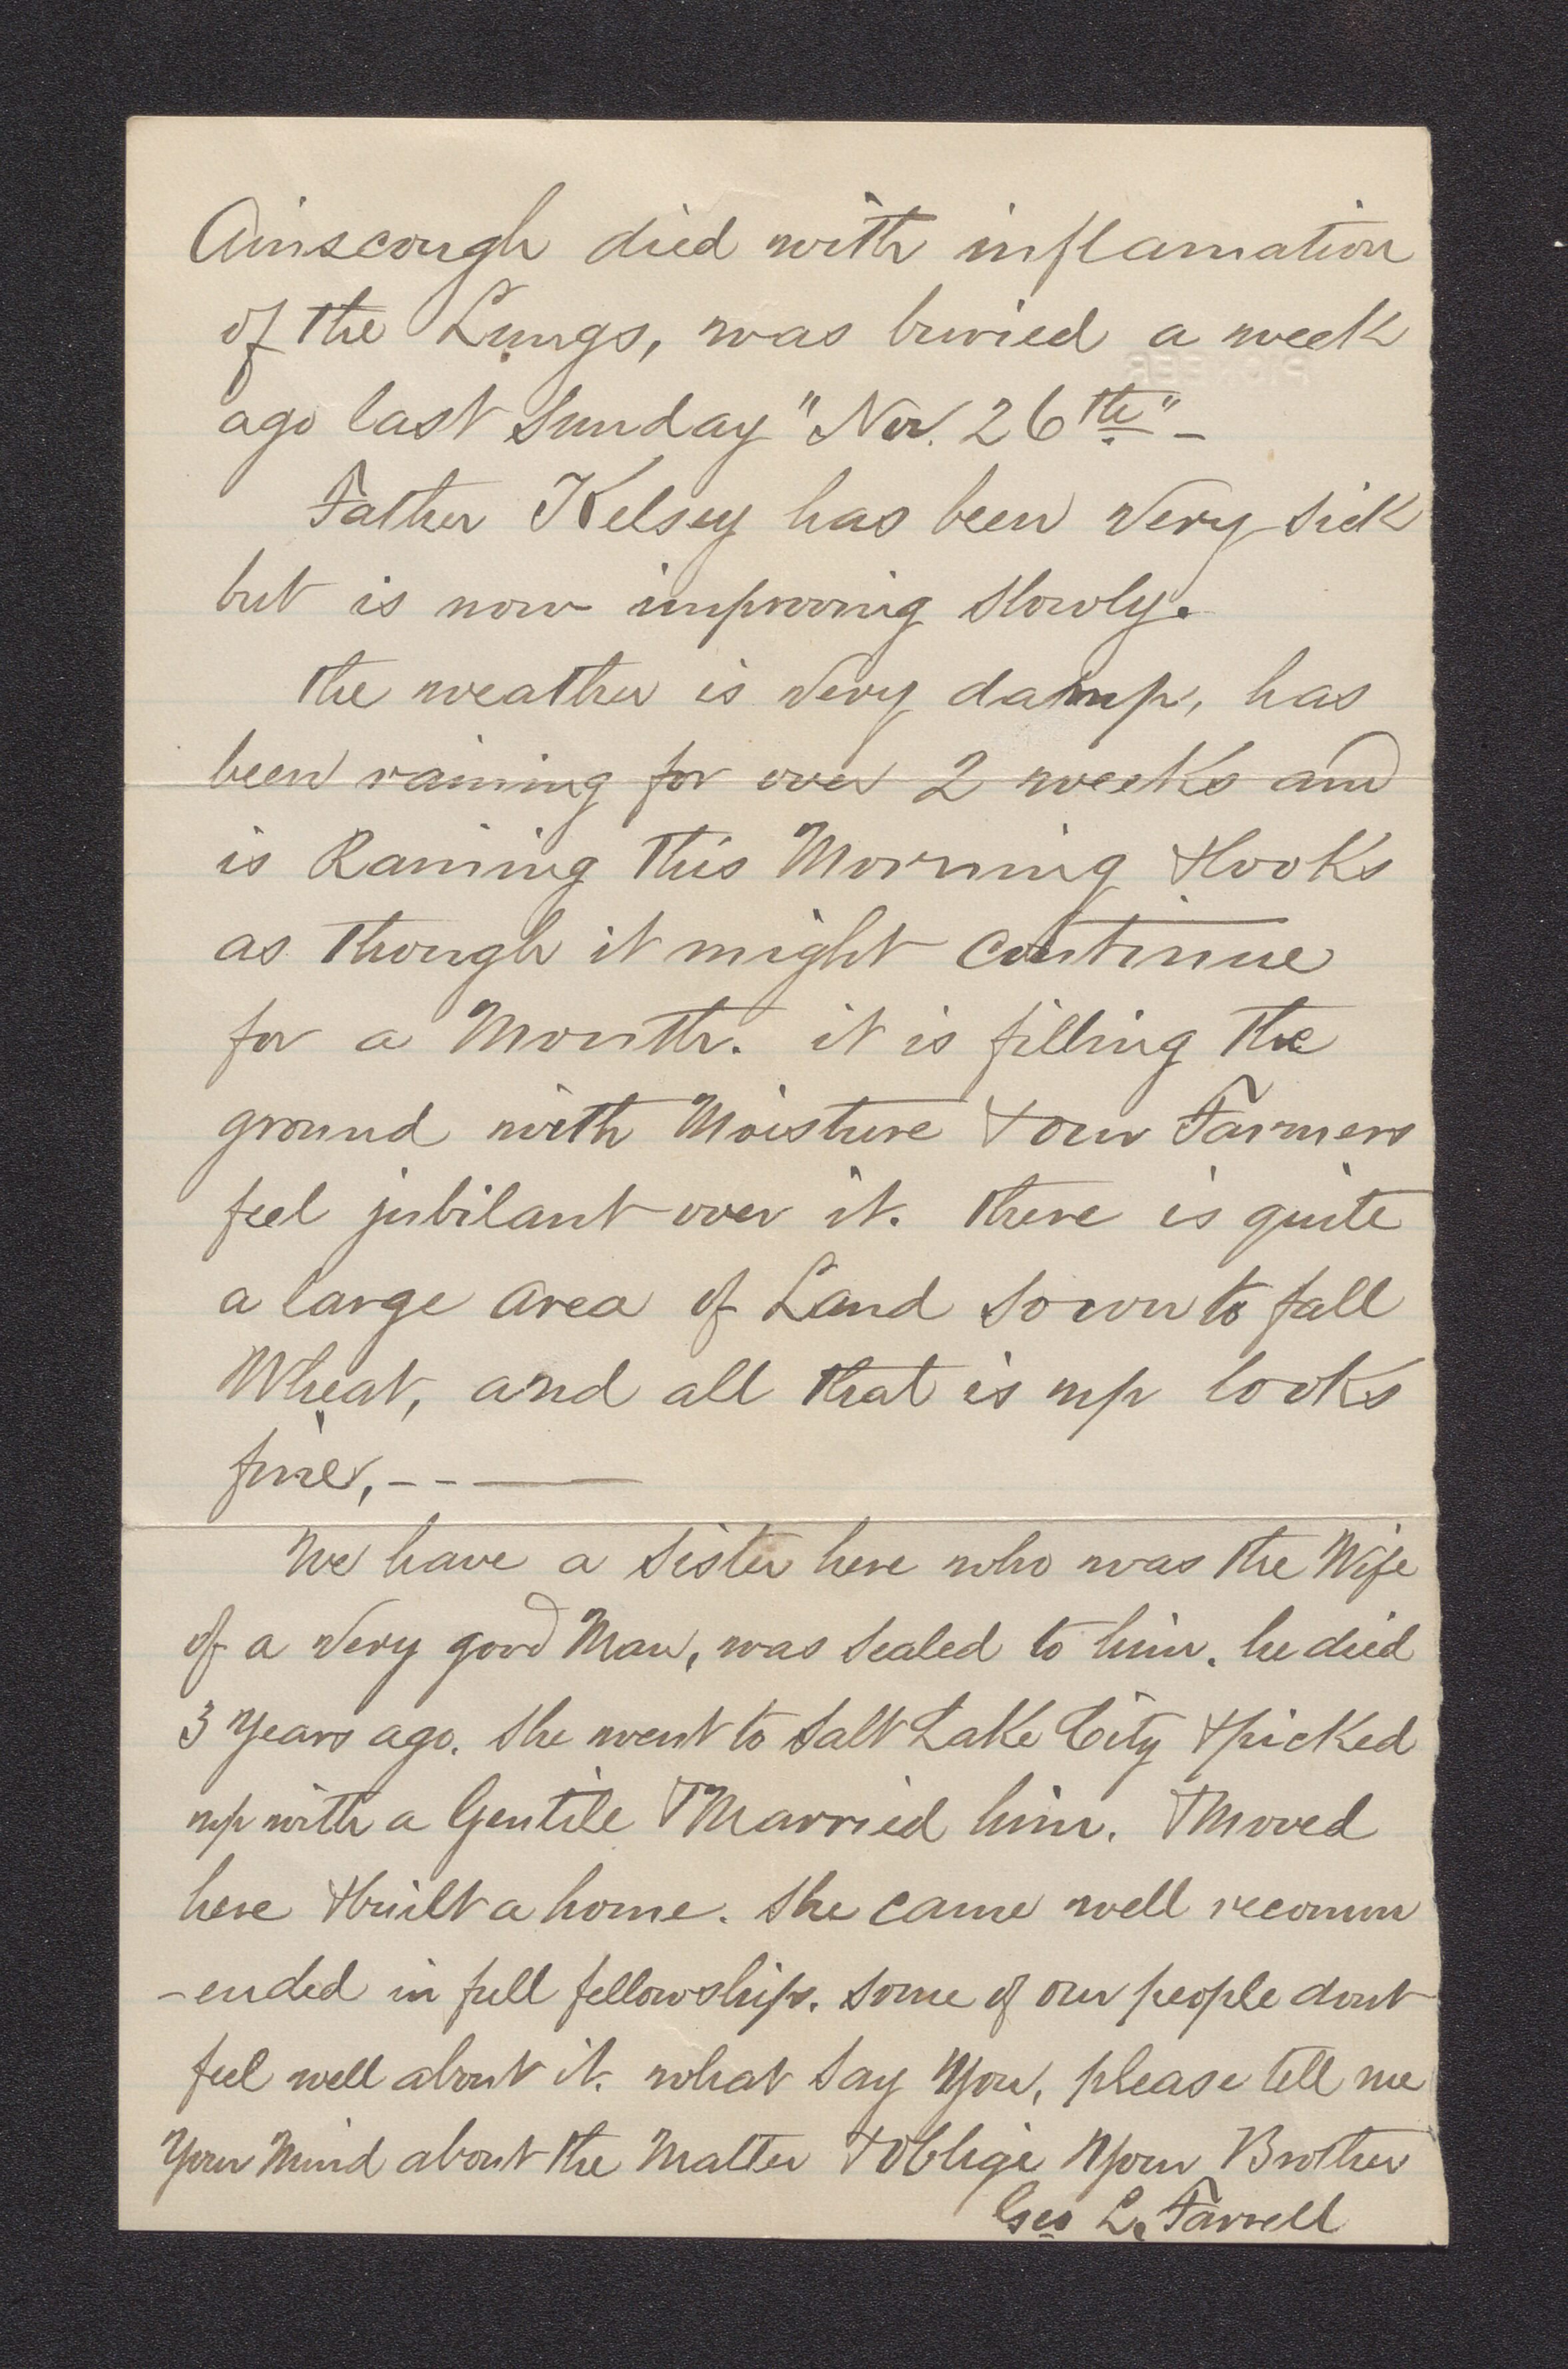 Ainscough died with inflamation
of the Lungs, was buried a week
ago last Sunday "Nov. 26th" -
Father Kelsey has been very sick
but is now improving slowly.
the weather is very damp, has
been raining for over 2 weeks and
is Raining this Morning & looks
as though it might continue
for a Month. it is filling the
ground with Moisture & our Farmers
feel jubilant over it. there is quite
a large area of Land sown to fall
Wheat, and all that is up looks
fine, - - —
We have a sister here who was the Wife
of a very good Man, was sealed to him. he died
3 years ago. she went to Salt Lake City & picked
up with a Gentile & Married him. & Moved
here & built a home. she came well recomm
-ended in full fellowship. some of our people dont
feel well about it. what say you, please tell me
your Mind about the Matter & oblige your Brother
Geo L. Farrell